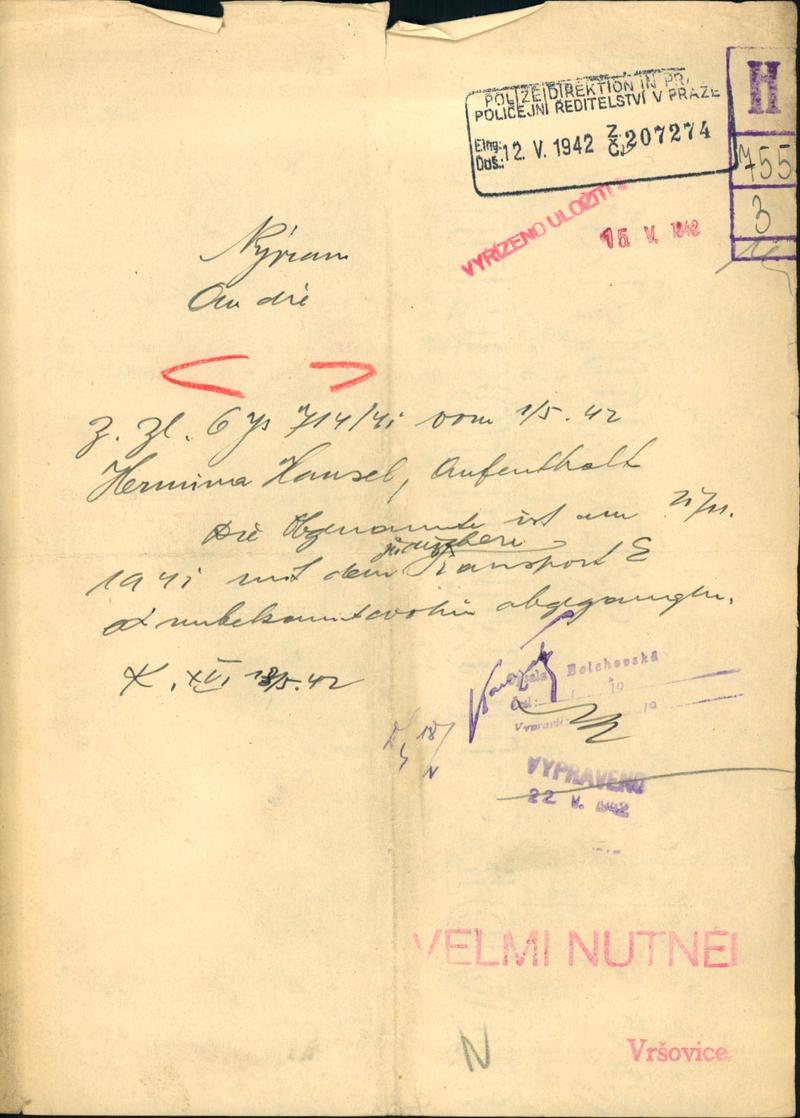 POLIZEIDIREKTION IN PRA
POLICEJNÍ ŘEDITELSTVÍ V PRAZE
Eing.: Doš.: 12. V. 1942 Z. Č. 207274
H
755
3
VYŘÍZENO ULOŽITI
15 V. 1942
An die
Z. Zl. 6 Js 714/41 vom 1/5. 42
Hermina Hansel, Aufenthalt
Die Obgenannte ist am
jüdischen
1941 mit dem Transport E
unbekanntwohin abgegangen.
K. XVI 13/5. 42
Bolchovská
19
19
18/
VYPRAVENO
22 V. 1942
VELMI NUTNÉ!
N
Vršovice